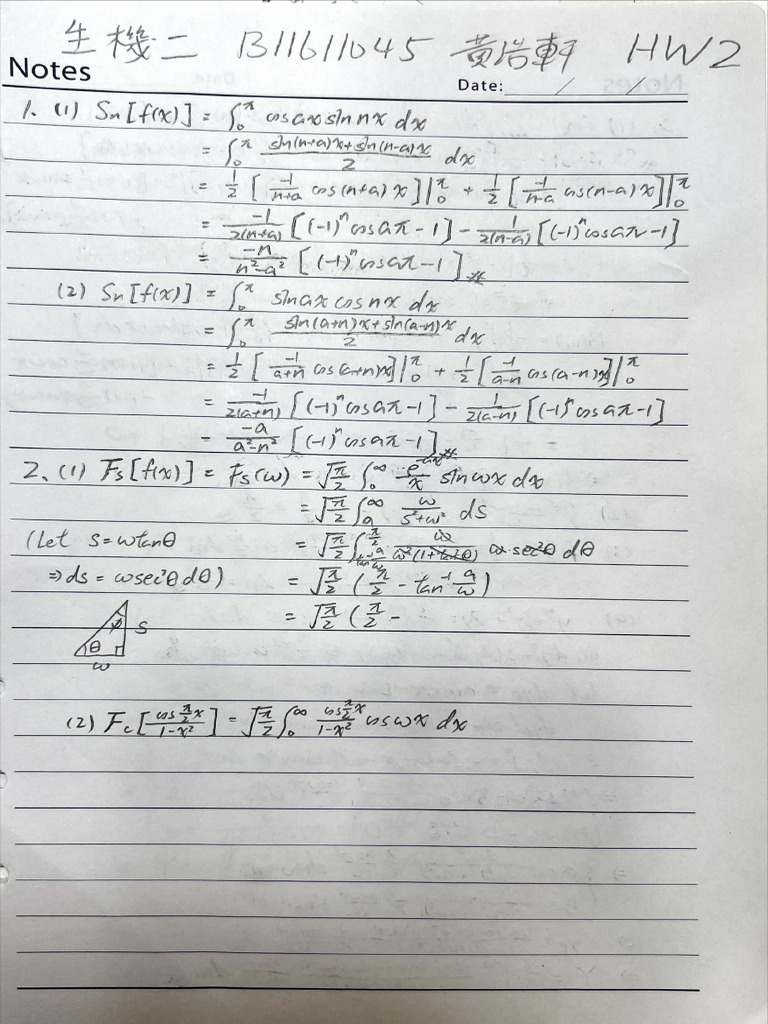 生機二 B11611045 黃浩軒 HW2
Notes
Date: / /
1. (1) Sn[f(x)] = ∫₀^π cosax sin nx dx
= ∫₀^π (sin(n+a)x + sin(n-a)x)/2 dx
= 1/2 [ -1/(n+a) cos(n+a)x ]|₀^π + 1/2 [ -1/(n-a) cos(n-a)x ]|₀^π
= -1/(2(n+a)) [(-1)ⁿ cosaπ - 1] - 1/(2(n-a)) [(-1)ⁿ cosaπ - 1]
= -n/(n²-a²) [(-1)ⁿ cosaπ - 1] #
(2) Sn[f(x)] = ∫₀^π sinax cos nx dx
= ∫₀^π (sin(a+n)x + sin(a-n)x)/2 dx
= 1/2 [ -1/(a+n) cos(a+n)x ]|₀^π + 1/2 [ -1/(a-n) cos(a-n)x ]|₀^π
= -1/(2(a+n)) [(-1)ⁿ cosaπ - 1] - 1/(2(a-n)) [(-1)ⁿ cosaπ - 1]
= -a/(a²-n²) [(-1)ⁿ cosaπ - 1] #
2. (1) Fs[f(x)] = Fs(ω) = √(π/2) ∫₀^∞ e^(-ax)/x sin ωx dx
= √(π/2) ∫ₐ^∞ ω/(s²+ω²) ds
(Let s = ωtanθ = √(π/2) ∫_(tan⁻¹ a/ω)^(π/2) ω/(ω²(1+tan²θ)) ω·sec²θ dθ
⇒ ds = ωsec²θ dθ) = √(π/2) (π/2 - tan⁻¹ a/ω)
= √(π/2) (π/2 -
φ s
θ
ω
(2) Fc[cos(π/2)x/(1-x²)] = √(π/2) ∫₀^∞ cos(π/2)x/(1-x²) cos ωx dx